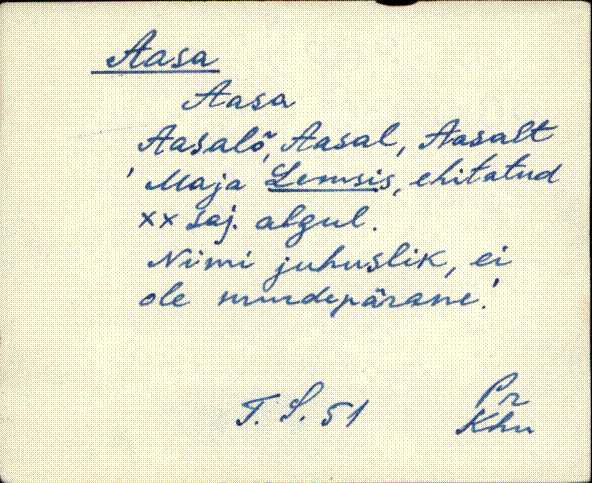 Aasa
Aasa
Aasalõ, Aasal, Aasalt
'Maja Lemsis, ehitatud
XX saj. algul.
Nimi juhuslik, ei
ole murdepärane.'
T. S. 51 Pr
Khn